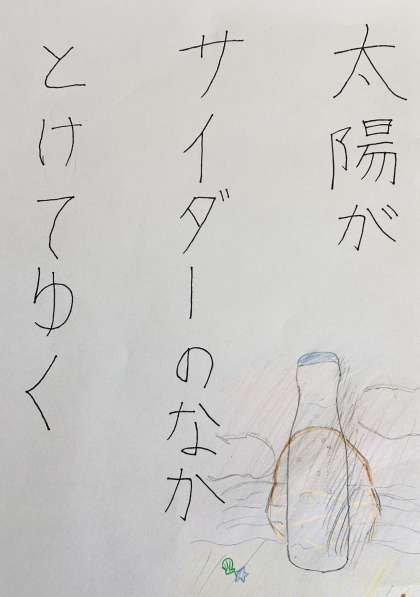 太陽が
サイダーのなか
とけてゆく